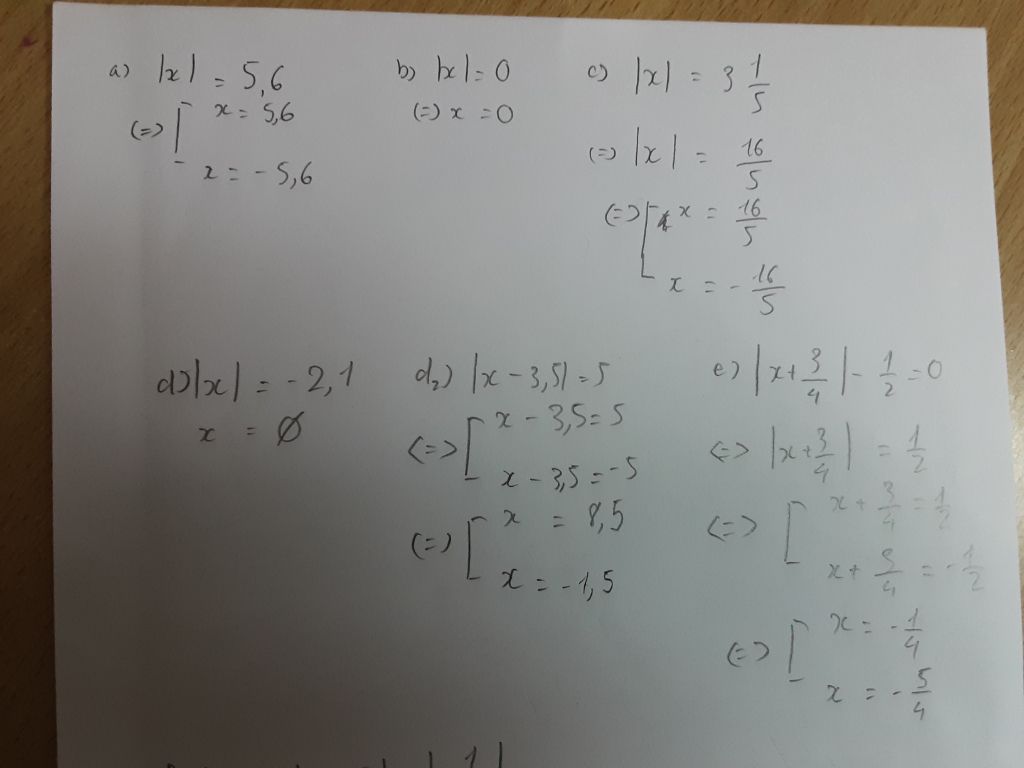 a) |x| = 5,6
(=) [ x = 5,6
x = - 5,6
b) |x| = 0
(=) x = 0
c) |x| = 3 1/5
(=) |x| = 16/5
(=) [ x = 16/5
x = - 16/5
d) |x| = - 2,1
x = Ø
d₂) |x - 3,5| = 5
<=> [ x - 3,5 = 5
x - 3,5 = -5
(=) [ x = 8,5
x = -1,5
e) |x + 3/4| - 1/2 = 0
<=> |x + 3/4| = 1/2
<=> [ x + 3/4 = 1/2
x + 3/4 = - 1/2
(=> [ x = - 1/4
x = - 5/4